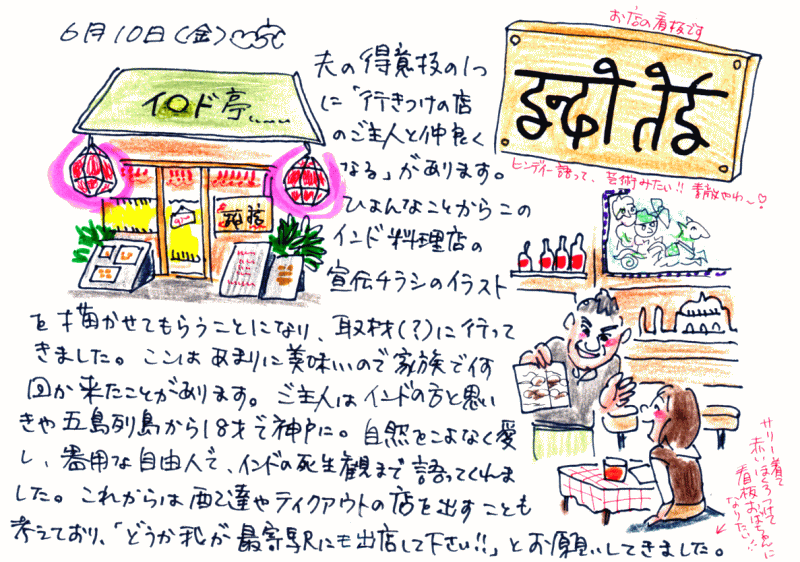 6月10日(金)
お店の看板です
इन्दो तेई
ヒンディー語って、芸術みたい!! 素敵やわ〜♡
イ○ド亭
夫の得意技の1つ
に「行きつけの店
のご主人と仲良く
なる」があります。
ひょんなことからこの
インド料理店の
宣伝チラシのイラスト
を描かせてもらうことになり、取材(?)に行って
きました。ここはあまりに美味いので家族で何
回か来たことがあります。ご主人はインドの方と思い
きや五島列島から18才で神戸に。自然をこよなく愛
し、器用な自由人で、インドの死生観まで語ってくれま
した。これからは配達やテイクアウトの店を出すことも
考えており、「どうか我が最寄駅にも出店して下さい!!」とお願いしてきました。
サリー着て
赤いほくろつけて
看板おばちゃんに
なりたい!!